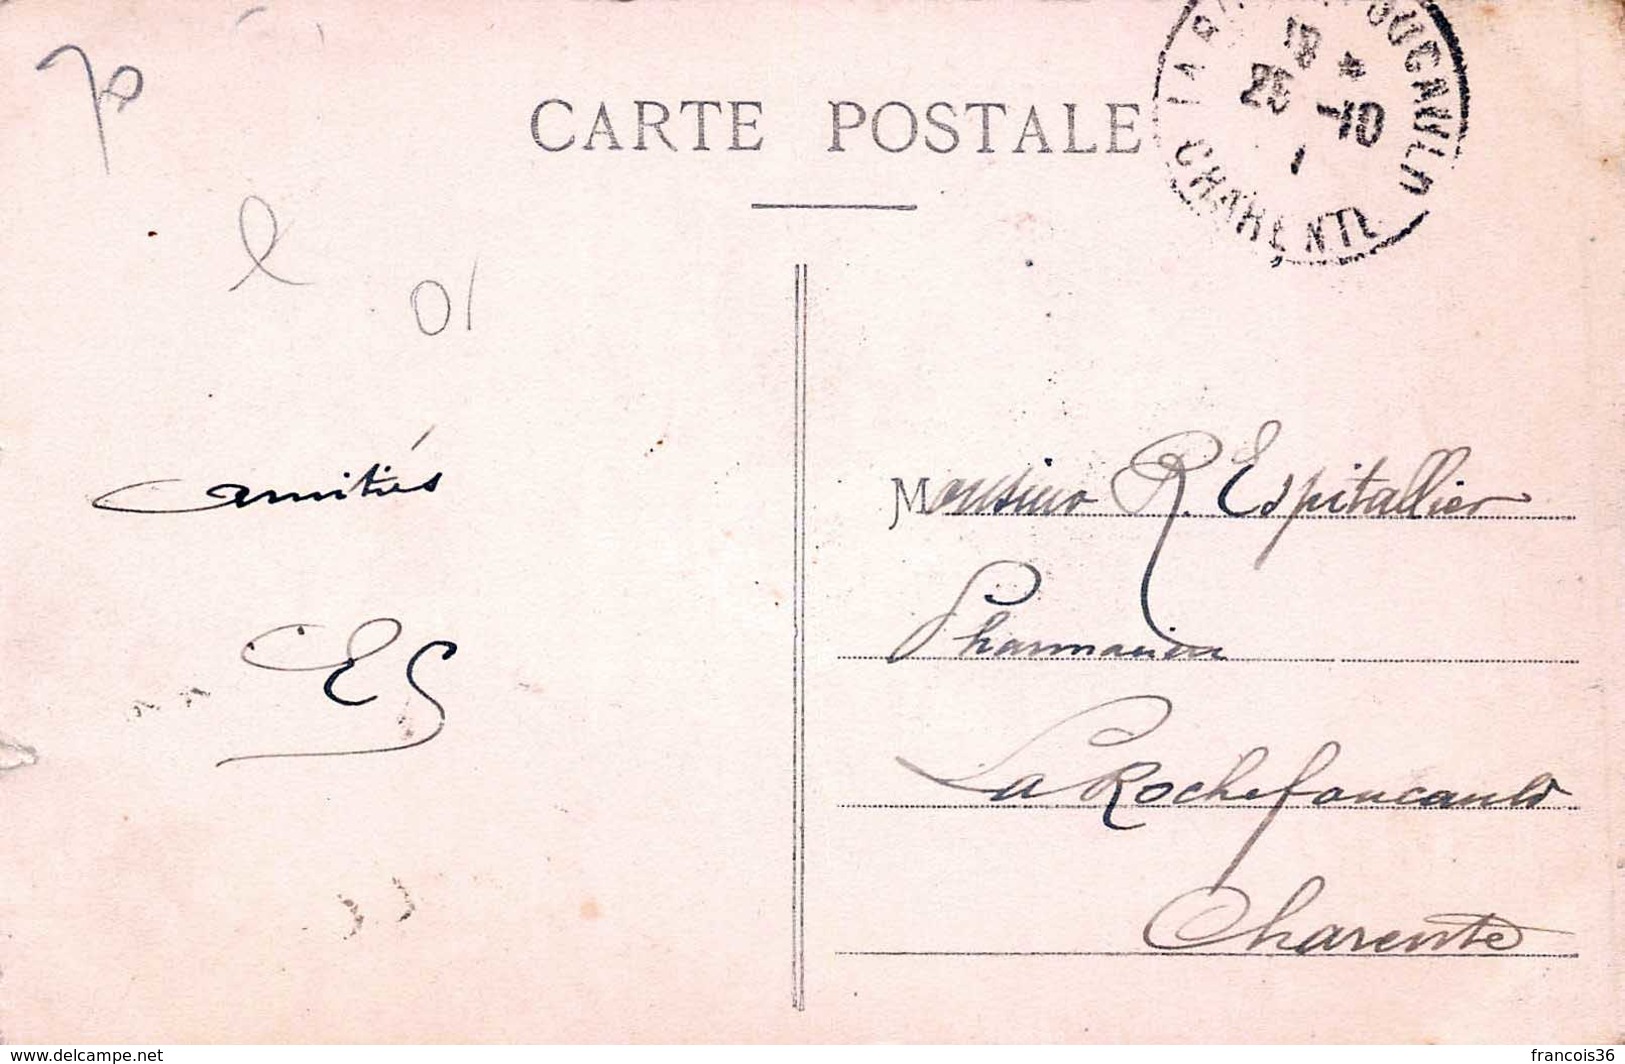 CARTE POSTALE
18 *
25 -10
CHARENTE
amitiés
ES
Monsieur R. Espitallier
Pharmacien
La Rochefoucauld
Charente
www.delcampe.net
francois36